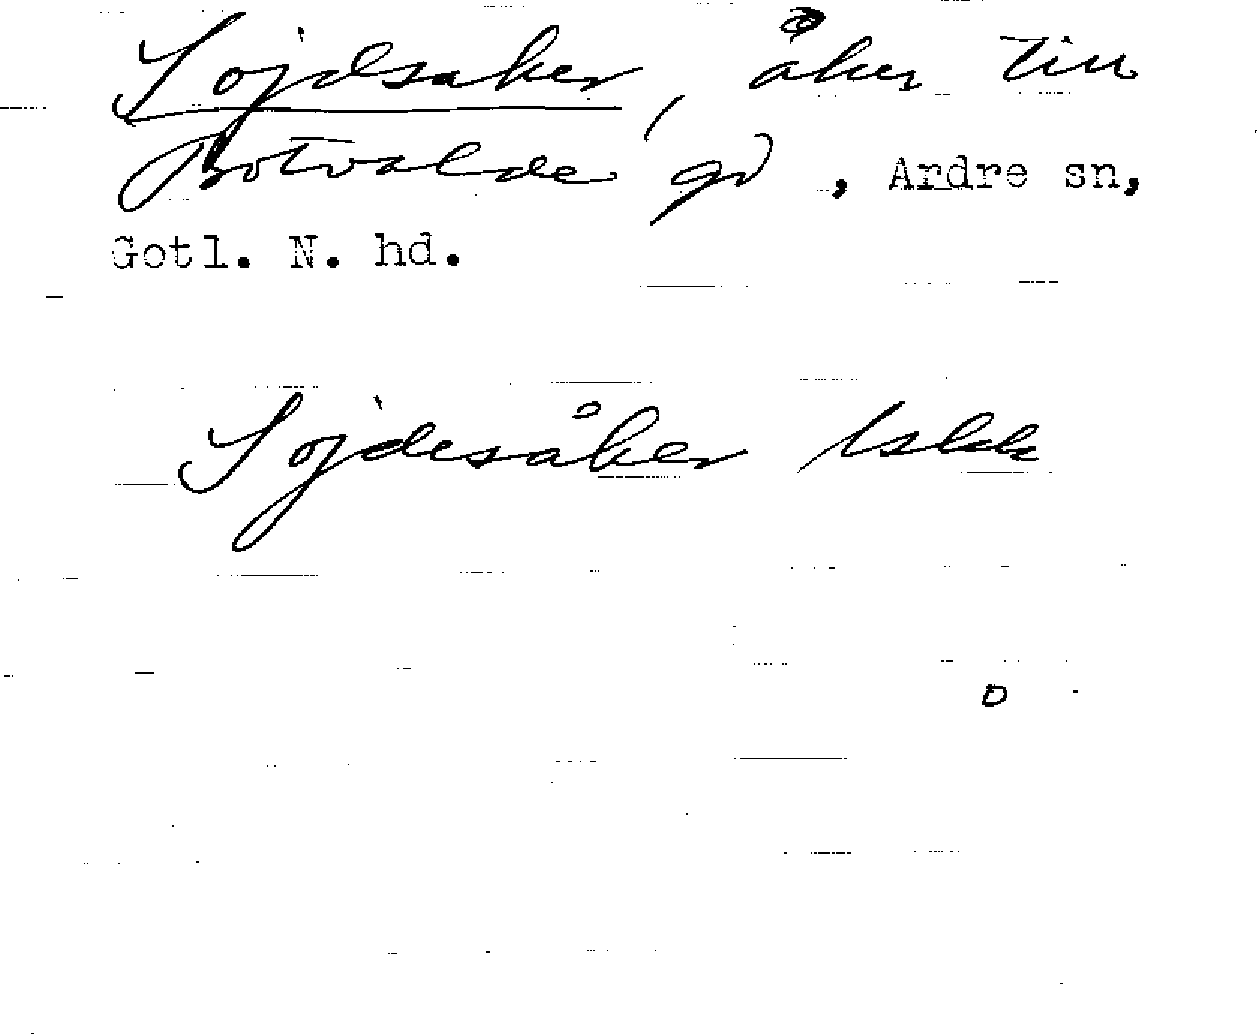 Sojdsaker, åker till
Botvalde gd, Ardre sn,
Gotl. N. hd.
Sojdesåker 1skk